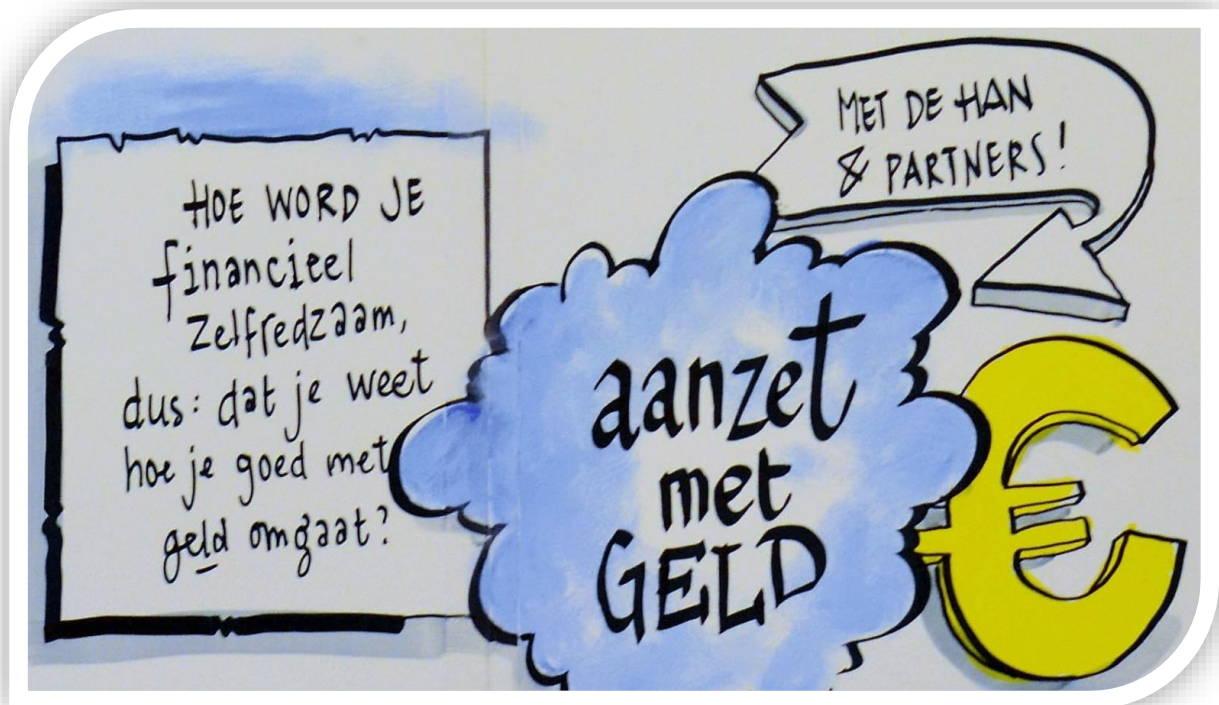 HOE WORD JE
financieel
zelfredzaam,
dus: dat je weet
hoe je goed met
geld omgaat?
MET DE HAN
& PARTNERS!
aanzet
met
GELD
€